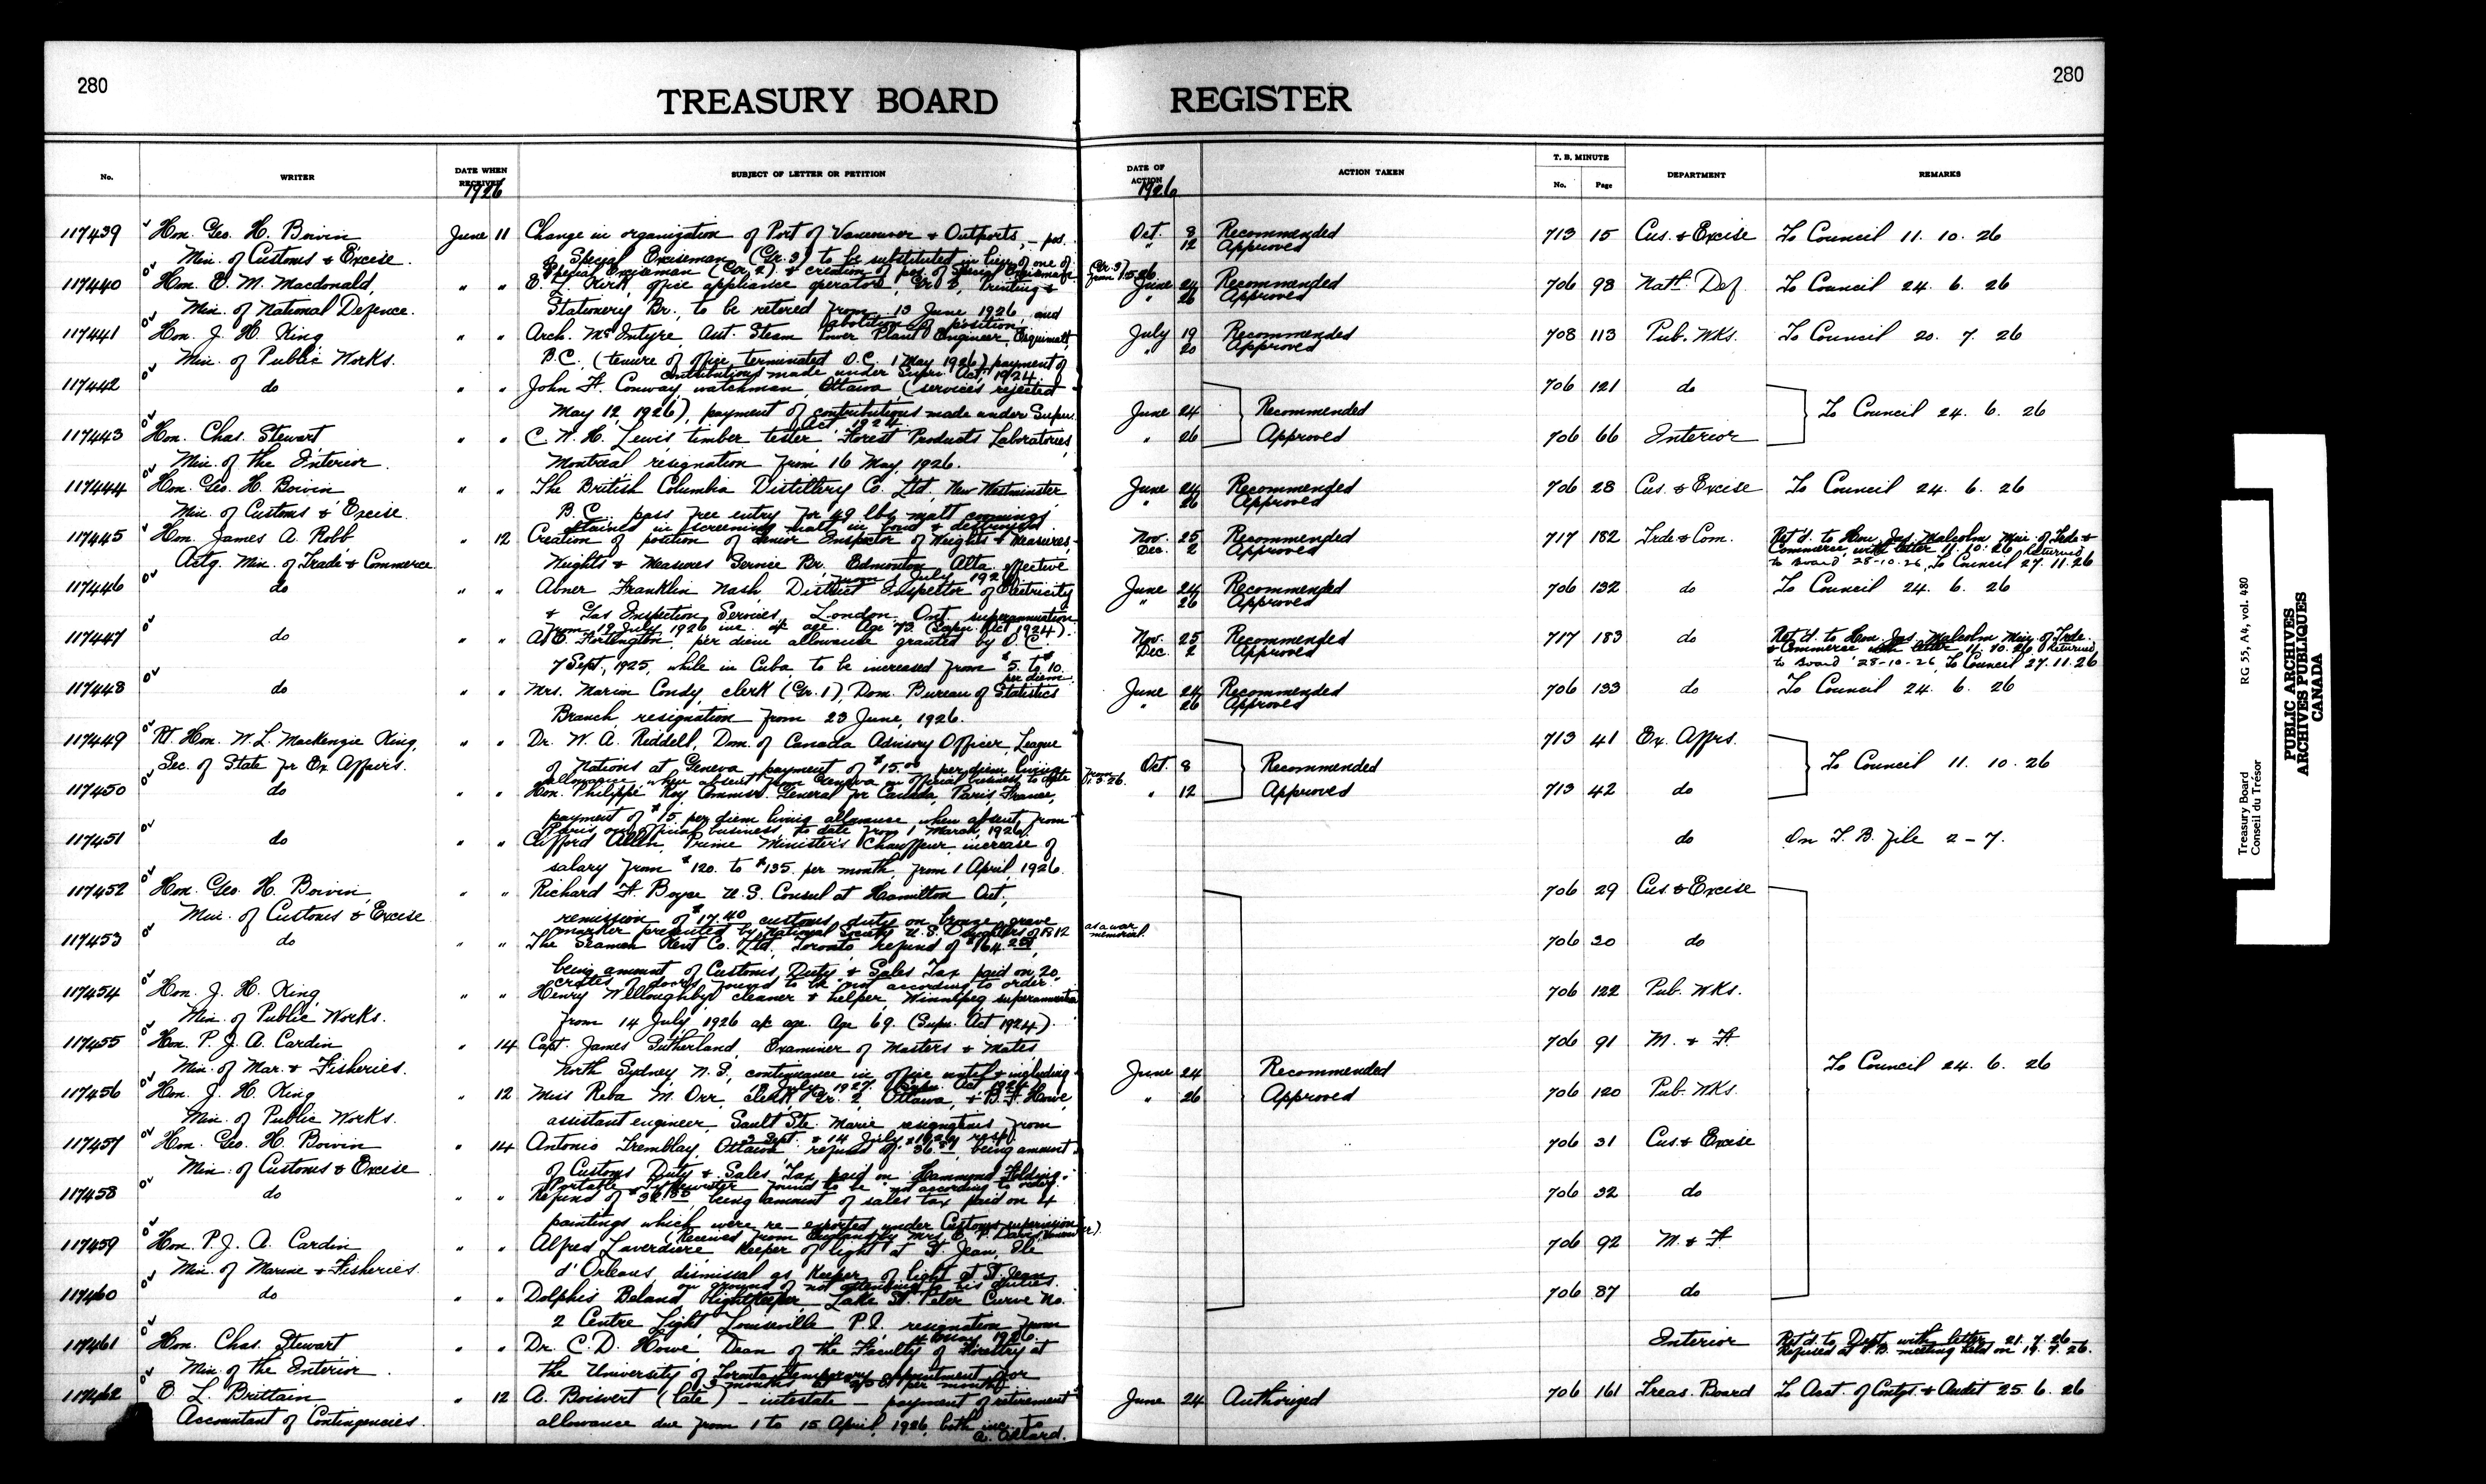 280
280
TREASURY BOARD REGISTER
No. WRITER DATE WHEN RECEIVED SUBJECT OF LETTER OR PETITION DATE OF ACTION ACTION TAKEN T. B. MINUTE DEPARTMENT REMARKS
No. Page
1926
1926
117439 Hon. Geo. H. Boivin June 11 Change in organization of Port of Vancouver & Outports, – pos. Oct. 8 Recommended 713 15 Cus. & Excise To Council 11. 10. 26
Min. of Customs & Excise. of Special Exciseman (Gr. 3) to be substituted in lieu of one of " 12 Approved
Special Exciseman (Gr. 2) & creation of pos. of Special Exciseman (Gr. 3)
117440 Hon. E. M. Macdonald, " " E. L. Kirk, office appliance operator, Gr. 2, Printing & June 24 Recommended 706 98 Natl. Def. To Council 24. 6. 26
Min. of National Defence. Stationery Br., to be retired from 13 June 1926, and " 26 Approved
abolition of position.
117441 Hon. J. H. King " " Arch. McIntyre, Asst. Steam Power Plant Engineer, Esquimalt July 19 Recommended 708 113 Pub. Wks. To Council 20. 7. 26
Min. of Public Works. B.C. (tenure of office terminated O.C. 1 May 1926) payment of " 20 Approved
contributions made under Supn. Act. 1924.
117442 do " " John F. Conway, watchman, Ottawa (services rejected 706 121 do
May 12, 1926), payment of contributions made under Supn. June 24 Recommended To Council 24. 6. 26
Act 1924.
117443 Hon. Chas. Stewart " " C. W. H. Lewis timber tester Forest Products Laboratories, " 26 Approved 706 66 Interior
Min. of the Interior. Montreal resignation from 16 May, 1926.
117444 Hon. Geo. H. Boivin " " The British Columbia Distillery Co. Ltd., New Westminster June 24 Recommended 706 28 Cus. & Excise To Council 24. 6. 26
Min. of Customs & Excise. B.C. pass free entry for 49 lbs. malt combings " 26 Approved
obtained in screening malt in bond & destroyed.
117445 Hon. James A. Robb " 12 Creation of position of Senior Inspector of Weights & Measures, Nov. 25 Recommended 717 182 Trde & Com. Ret'd. to Hon. Jas. Malcolm Min. of Trde &
Actg. Min. of Trade & Commerce Weights & Measures Service Br. Edmonton, Alta. effective Dec. 2 Approved Commerce, with letter 11. 10. 26, Returned
to Board 28-10-26, To Council 27. 11. 26
117446 do " " Abner Franklin Nash, District Inspector of Electricity June 24 Recommended 706 132 do To Council 24. 6. 26
& Gas Inspection Services, London, Ont. superannuation " 26 Approved
from 19 July 1926 inc. a/c age. Age 73 (Supn. Act 1924).
117447 do " " A. E. Fortington, per diem allowance granted by O.C. Nov. 25 Recommended 717 183 do Ret'd. to Hon. Jas. Malcolm Min. of Trde.
7 Sept., 1925, while in Cuba, to be increased from $5. to $10. Dec. 2 Approved & Commerce with letter 11. 10. 26, Returned,
per diem. to Board 28-10-26, To Council 27. 11. 26
117448 do " " Mrs. Marion Condy, clerk (Gr. 1), Dom. Bureau of Statistics June 24 Recommended 706 133 do To Council 24. 6. 26
Branch, resignation from 23 June, 1926. " 26 Approved
117449 Rt. Hon. W. L. Mackenzie King, " " Dr. W. A. Riddell, Dom. of Canada Advisory Officer, League 713 41 Ex. Affrs.
Sec. of State for Ex. Affairs. of Nations at Geneva payment of $15.00 per diem living Oct. 8 Recommended To Council 11. 10. 26
allowance when absent from Geneva on official business to date from 1. 3. 26.
117450 do " " Hon. Philippe Roy, Commsr. General for Canada, Paris, France, " 12 Approved 713 42 do
payment of $15 per diem living allowance when absent from
Paris on official business, to date from 1 March, 1926.
117451 do " " Clifford Allen, Prime Minister's Chauffeur, increase of do On T. B. file 2 – 7.
salary from $120. to $135. per month, from 1 April, 1926.
117452 Hon. Geo. H. Boivin, " " Richard F. Boyce U.S. Consul at Hamilton Ont., 706 29 Cus & Excise
Min. of Customs & Excise remission of $17.40 customs duty on bronze grave
marker presented by National Society U.S. Daughters of 1812 as a war memorial.
117453 do " " The Seaman Kent Co. Ltd., Toronto, refund of $164. 706 30 do
being amount of Customs Duty & Sales Tax paid on 20
crates of doors found to be not according to order.
117454 Hon. J. H. King " " Henry Willoughby cleaner & helper, Winnipeg superannuation 706 122 Pub. Wks.
Min. of Public Works. from 14 July, 1926 a/c age. Age 69. (Supn. Act 1924).
117455 Hon. P. J. A. Cardin " 14 Capt. James Sutherland, Examiner of Masters & Mates 706 91 M. & F.
Min. of Mar. & Fisheries. North Sydney N.S., continuance in office until & including June 24 Recommended To Council 24. 6. 26
18 July, 1927. (Supn. Act 1924).
117456 Hon. J. H. King " 12 Miss Reba M. Orr, clerk Gr. 2, Ottawa, & B. F. Howe, " 26 Approved 706 120 Pub. Wks.
Min. of Public Works. assistant engineer, Sault Ste. Marie resignations from
2 Sept. & 14 July, 1926, resp.
117457 Hon. Geo. H. Boivin " 14 Antonio Tremblay, Ottawa refund of $36. being amount 706 31 Cus. & Excise
Min. of Customs & Excise of Customs Duty & Sales Tax paid on Hammond Folding
Portable Typewriter found to be not according to order.
117458 do " " Refund of being amount of sales tax paid on 4 706 32 do
paintings which were re-exported under Customs supervision
(Received from England by Mrs. E. P. Davis,
117459 Hon. P. J. A. Cardin " " Alfred Laverdiere Keeper of light at St. Jean, Ile 706 92 M. & F.
Min. of Marine & Fisheries. d'Orleans, dismissal as Keeper of light at St. Jean
on ground of not attending to his duties.
117460 do " " Dolphis Beland lightkeeper Lake St. Peter Curve No. 706 87 do
2 Centre Light Louiseville P.Q. resignation from
May 1926.
117461 Hon. Chas. Stewart " " Dr. C. D. Howe, Dean of the Faculty of Forestry at Interior Ret'd. to Dept. with letter 21. 7. 26
Min. of the Interior. the University of Toronto temporary appointment for Refused at T.B. meeting held on 19. 7. 26.
3 months at per month
117462 E. L. Brittain " 12 A. Boisvert (late) – intestate – payment of retirement June 24 Authorized 706 161 Treas. Board To Acct. of Contgs. & Audit 25. 6. 26
Accountant of Contingencies. allowance due from 1 to 15 April, 1926, both inc. to
A. Allard.
Treasury Board RG 55, A4, vol. 480
Conseil du Trésor
PUBLIC ARCHIVES
ARCHIVES PUBLIQUES
CANADA